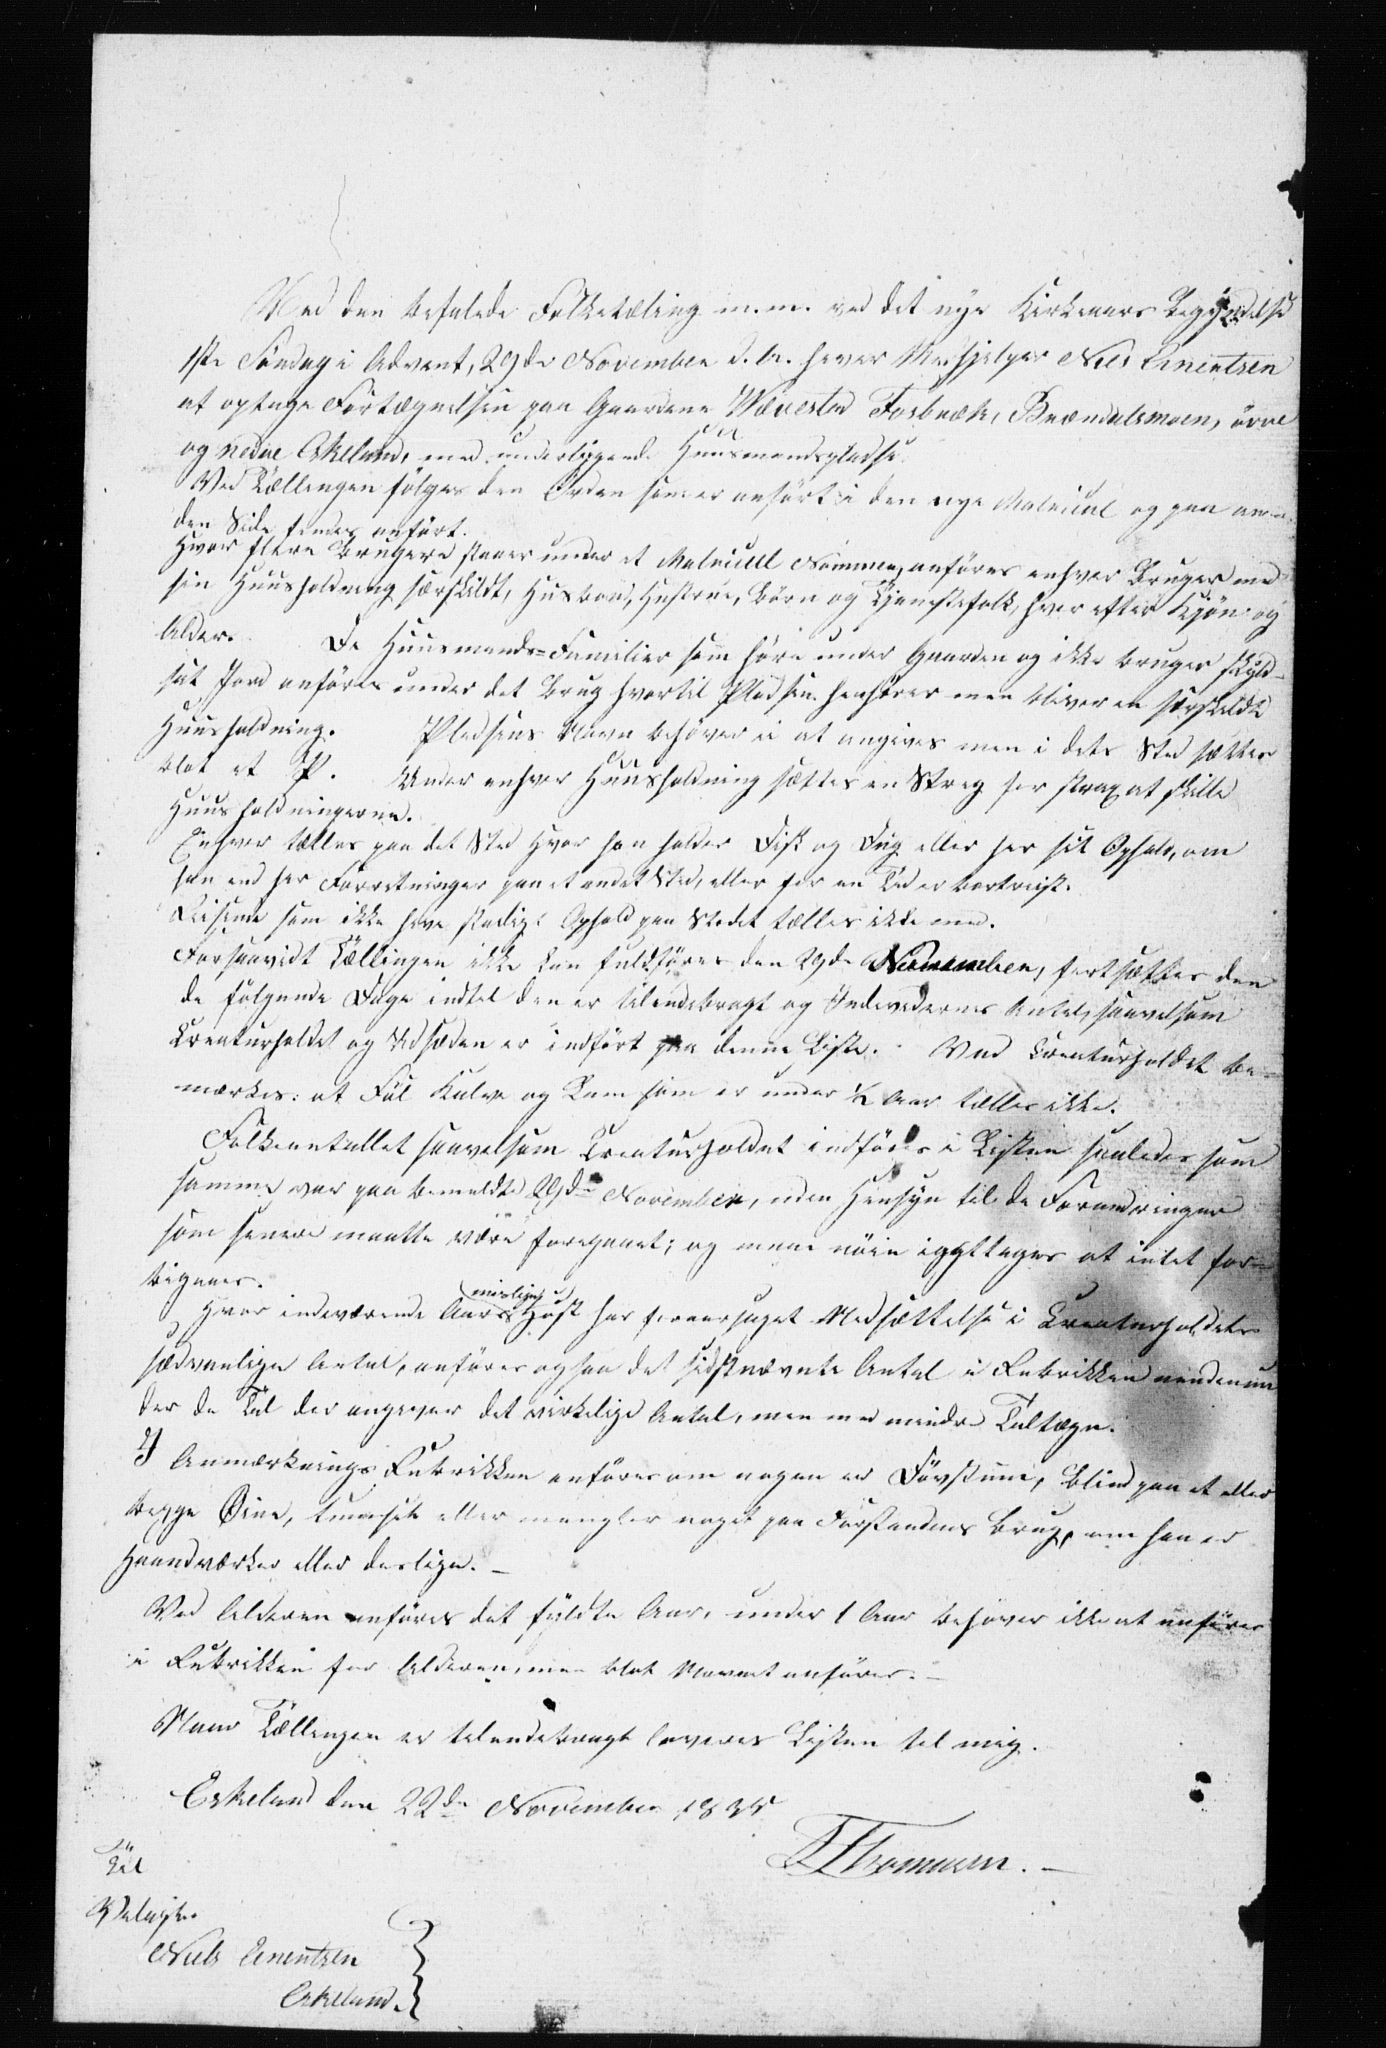 Ved den befalede Folketæling m.m. ved det nye Kirkeaars Begyndelse
1ste Søndag i Advent, 29de November d. A. haver Medhjelper Niels Enertsen
at optage Fortægnelsen paa Gaardene Wævestad Fosbæk, Brændalsmoen, övre
og nedre Eskeland, med underliggende Huusmandspladse.
Ved Tællingen følges den Orden som er anført i den nye Matricul og paa an-
den Side findes anført.
Hvor flere Brugere staaer under et Matricul Nummer, anføres enhver Bruger med
sin Huusholdning særskildt, Husbond, Hustrue, Børn og Tjenestefolk, hver efter Kjøn og
Alder. De Huusmands-Familier som høre under Gaarden og ikke bruger skyld-
sat Jord anføres under det Brug hvortil Pladsen henhører men bliver en særskildt
Huusholdning. Pladsens Navn behøver ei at angives men i dets Sted sættes
blot et P. Under enhver Huusholdning sættes en Streg for strax at skille
Huusholdningerne.
Enhver tælles paa det Sted hvor han holder Disk og Dug eller har sit Ophold, om
han end har Forretninger paa et andet Sted, eller for en Tid er bortreist.
Reisende som ikke have stadigt Ophold paa Stedet tælles ikke med.
Forsaavidt Tællingen ikke kan fuldføres den 29de November, fortsættes den
de følgende Dage indtil den er tilendebragt og Individernes Antal, saavelsom
Creaturholdet og Udsæden er indført paa denne Liste. Ved Creaturholdet be-
mærkes: at Føl Kalve og Lam som er under 1/2 Aar tælles ikke.
Folkeantallet saavelsom Creaturholdet indføres i Listen saaledes som
samme var paa bemeldte 29de November, uden Hensyn til de Forandringer
som senere maatte være foregaaet; og maae nøie iagttages at intet for-
bigaaes.
Hvor indeværende Aars mislige Høst har foraarsaget Nedsættelse i Creaturholdets
sædvanlige Antal, anføres ogsaa det sidstnævnte Antal i Rubrikken nedenun
der de Tal der angiver det virkelige Antal, men med mindre Taltægn.
I Anmærknings Rubrikken anføres om nogen er Døvstum, blind paa et eller
begge Øine, eller mangler noget paa Forstandens Brug, om han er
Haandværker eller deslige. -
Ved Alderen anføres det fyldte Aar, under 1 Aar behøver ikke at anføres
i Rubrikken for Alderen, men blot Navnet anføres. -
Naar Tællingen er tilendebragt leveres Listen til mig.
Eskeland den 22de November 1835
Thommesen. -
Til
Niels Enertsen
Eskeland.